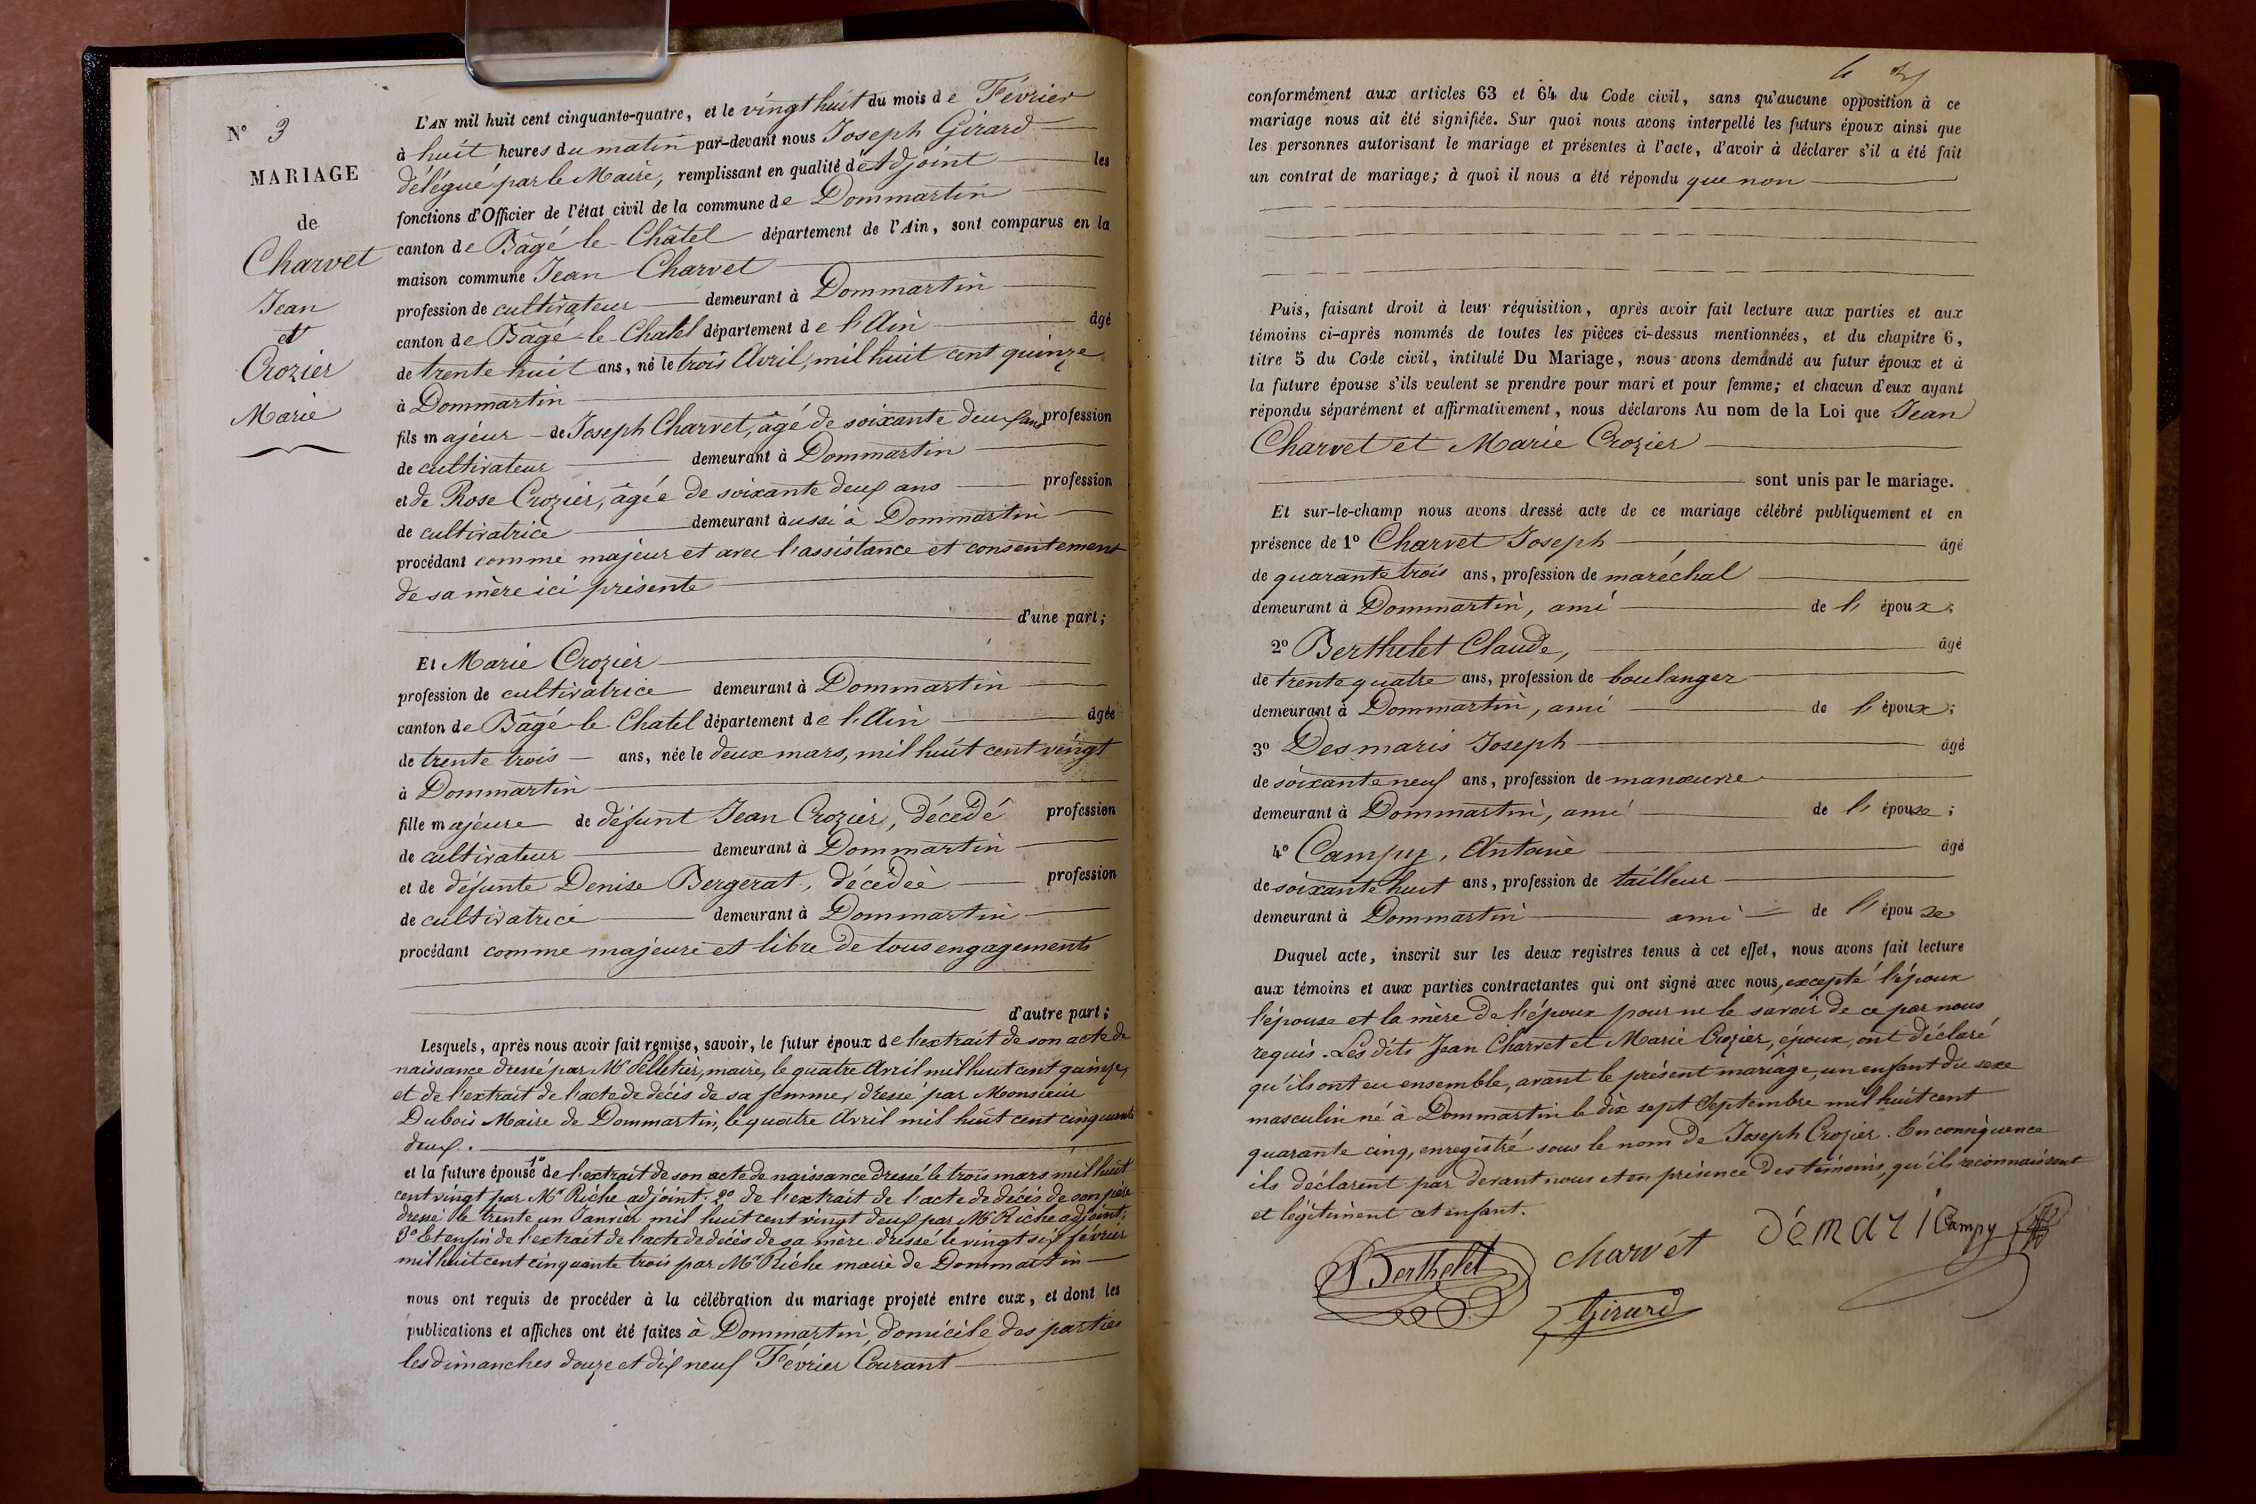 N° 3
MARIAGE
de
Charvet
Jean
et
Crozier
Marie
L'AN mil huit cent cinquante-quatre, et le vingt huit du mois de Février
à huit heures du matin par-devant nous Joseph Girard
délégué par le Maire, remplissant en qualité d'Adjoint les
fonctions d'Officier de l'état civil de la commune de Dommartin
canton de Bâgé le Châtel département de l'Ain, sont comparus en la
maison commune Jean Charvet
profession de cultivateur demeurant à Dommartin
canton de Bâgé le Chatel département de l'Ain âgé
de trente huit ans, né le trois Avril, mil huit cent quinze
à Dommartin
fils majeur de Joseph Charvet, âgé de soixante deux ans profession
de cultivateur demeurant à Dommartin
et de Rose Crozier, âgée de soixante deux ans profession
de cultivatrice demeurant aussi à Dommartin
procédant comme majeur et avec l'assistance et consentement
de sa mère ici présente
d'une part;
Et Marie Crozier
profession de cultivatrice demeurant à Dommartin
canton de Bâgé le Chatel département de l'Ain âgée
de trente trois ans, née le deux mars, mil huit cent vingt
à Dommartin
fille majeure de défunt Jean Crozier, décédé profession
de cultivateur demeurant à Dommartin
et de défunte Denise Bergerat, décédée profession
de cultivatrice demeurant à Dommartin
procédant comme majeure et libre de tous engagements
d'autre part;
Lesquels, après nous avoir fait remise, savoir, le futur époux de l'extrait de son acte de
naissance dressé par Mr Pelletier, maire, le quatre Avril mil huit cent quinze,
et de l'extrait de l'acte de décès de sa femme, dressé par Monsieur
Dubois Maire de Dommartin, le quatre Avril mil huit cent cinquante
deux.
et la future épouse 1° de l'extrait de son acte de naissance dressé le trois mars mil huit
cent vingt par Mr Riche adjoint. 2° de l'extrait de l'acte de décès de son père
dressé le trente un Janvier mil huit cent vingt deux par Mr Riche adjoint;
3° Et enfin de l'extrait de l'acte de décès de sa mère dressé le vingt six février
mil huit cent cinquante trois par Mr Riche maire de Dommartin
nous ont requis de procéder à la célébration du mariage projeté entre eux, et dont les
publications et affiches ont été faites à Dommartin, domicile des parties
les dimanches douze et dix neuf Février Courant
conformément aux articles 63 et 64 du Code civil, sans qu'aucune opposition à ce
mariage nous ait été signifiée. Sur quoi nous avons interpellé les futurs époux ainsi que
les personnes autorisant le mariage et présentes à l'acte, d'avoir à déclarer s'il a été fait
un contrat de mariage; à quoi il nous a été répondu que non
Puis, faisant droit à leur réquisition, après avoir fait lecture aux parties et aux
témoins ci-après nommés de toutes les pièces ci-dessus mentionnées, et du chapitre 6,
titre 5 du Code civil, intitulé Du Mariage, nous avons demandé au futur époux et à
la future épouse s'ils veulent se prendre pour mari et pour femme; et chacun d'eux ayant
répondu séparément et affirmativement, nous déclarons Au nom de la Loi que Jean
Charvet et Marie Crozier
sont unis par le mariage.
Et sur-le-champ nous avons dressé acte de ce mariage célébré publiquement et en
présence de 1° Charvet Joseph âgé
de quarante trois ans, profession de maréchal
demeurant à Dommartin, ami de l'époux;
2° Berthelet Claude, âgé
de trente quatre ans, profession de boulanger
demeurant à Dommartin, ami de l'époux;
3° Desmaris Joseph âgé
de soixante neuf ans, profession de manœuvre
demeurant à Dommartin, ami de l'épouse;
4° Campy, Antoine âgé
de soixante huit ans, profession de tailleur
demeurant à Dommartin ami de l'épouse
Duquel acte, inscrit sur les deux registres tenus à cet effet, nous avons fait lecture
aux témoins et aux parties contractantes qui ont signé avec nous, excepté l'époux
l'épouse et la mère de l'époux pour ne le savoir de ce par nous
requis. Les dits Jean Charvet et Marie Crozier, époux, ont déclaré
qu'ils ont eu ensemble, avant le présent mariage, un enfant du sexe
masculin né à Dommartin le dix sept Septembre mil huit cent
quarante cinq, enregistré sous le nom de Joseph Crozier. En conséquence
ils déclarent par devant nous et en présence des témoins, qu'ils reconnaissent
et légitiment cet enfant.
Berthelet charvét Démari Campy
Girard